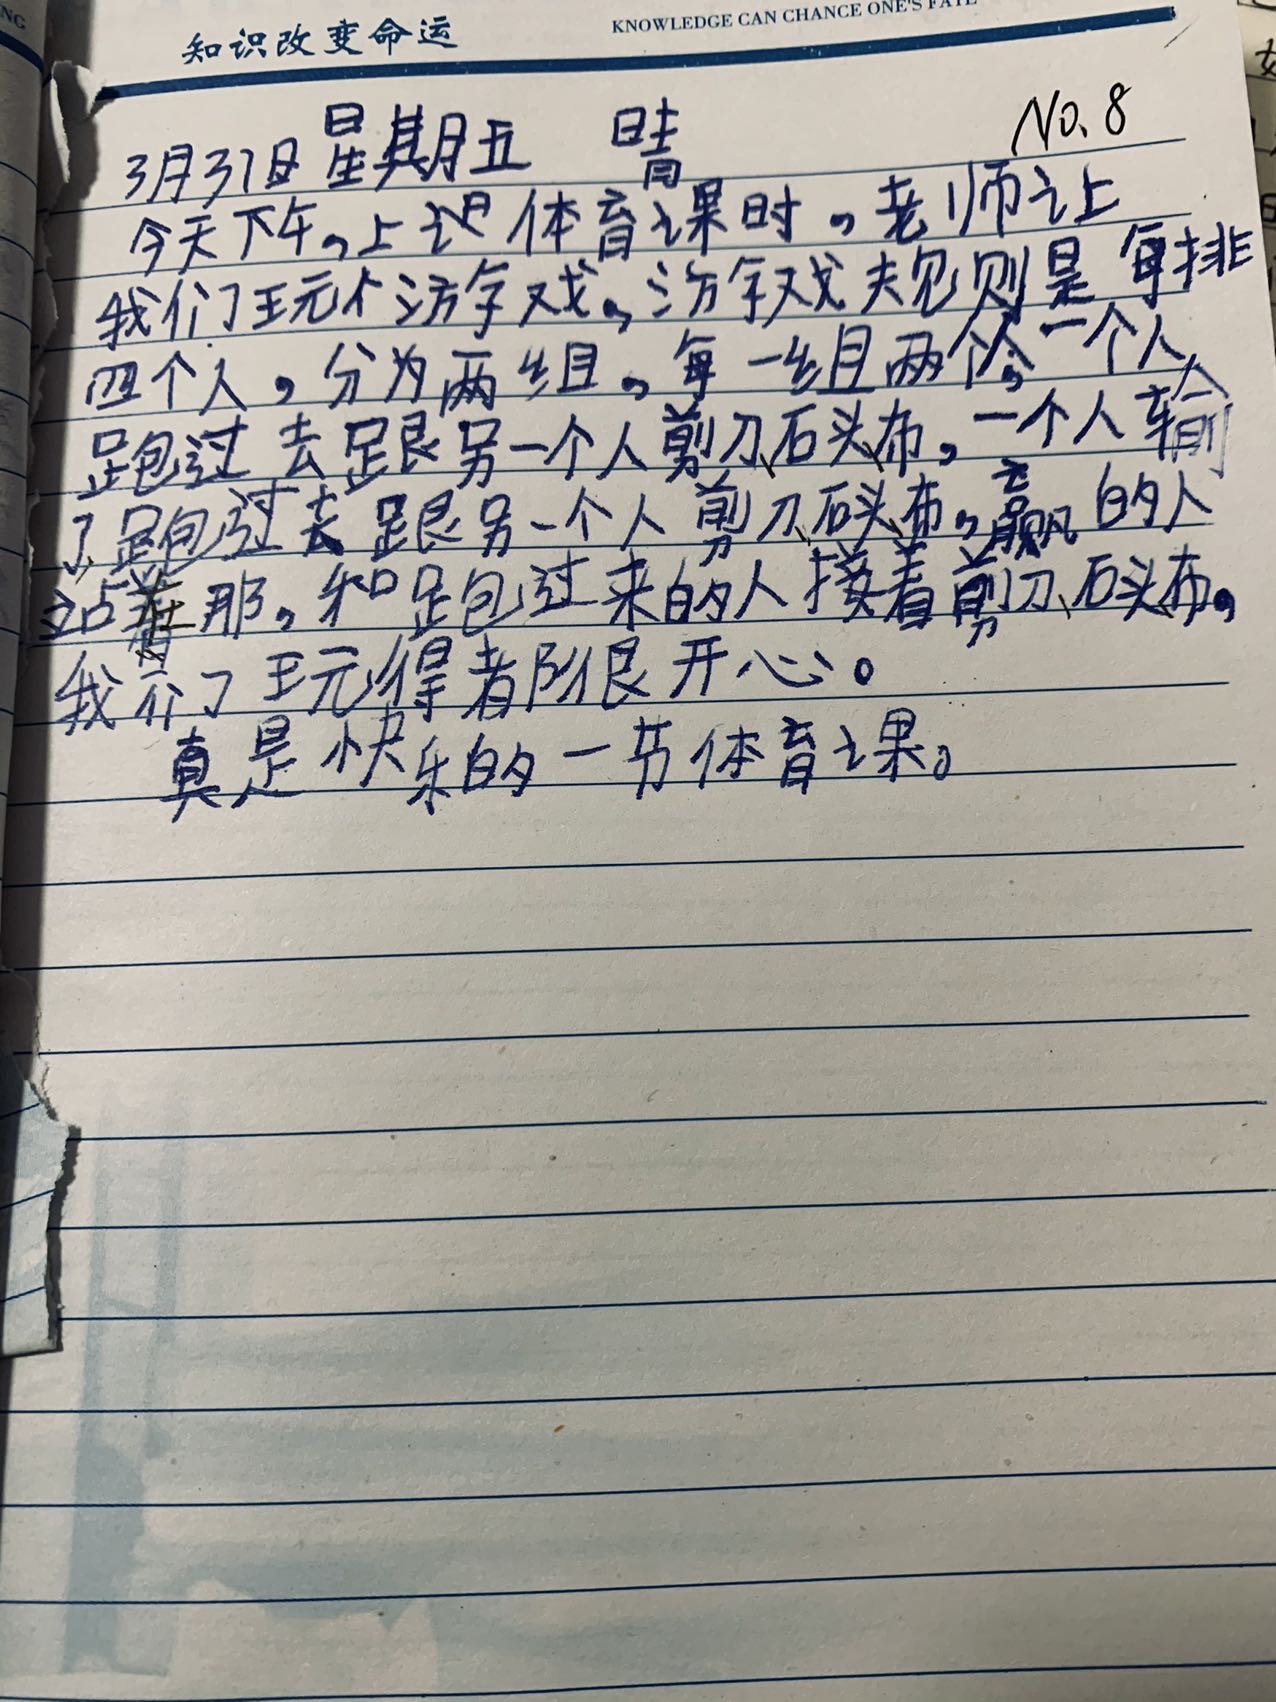 知识改变命运
KNOWLEDGE CAN CHANCE ONE'S FATE
3月31日星期五 晴 No.8
今天下午,上记体育课时,老师让
我们玩个游戏,游戏规则是每排
四个人,分为两组,每一组两个人,一个人
跑过去跟另一个人剪刀、石头、布,一个人输
了,跑过去跟另一个人剪刀、石头、布,赢的人
站着那,和跑过来的人接着剪刀、石头、布,
我们玩得都很开心。
真是快乐的一节体育课。